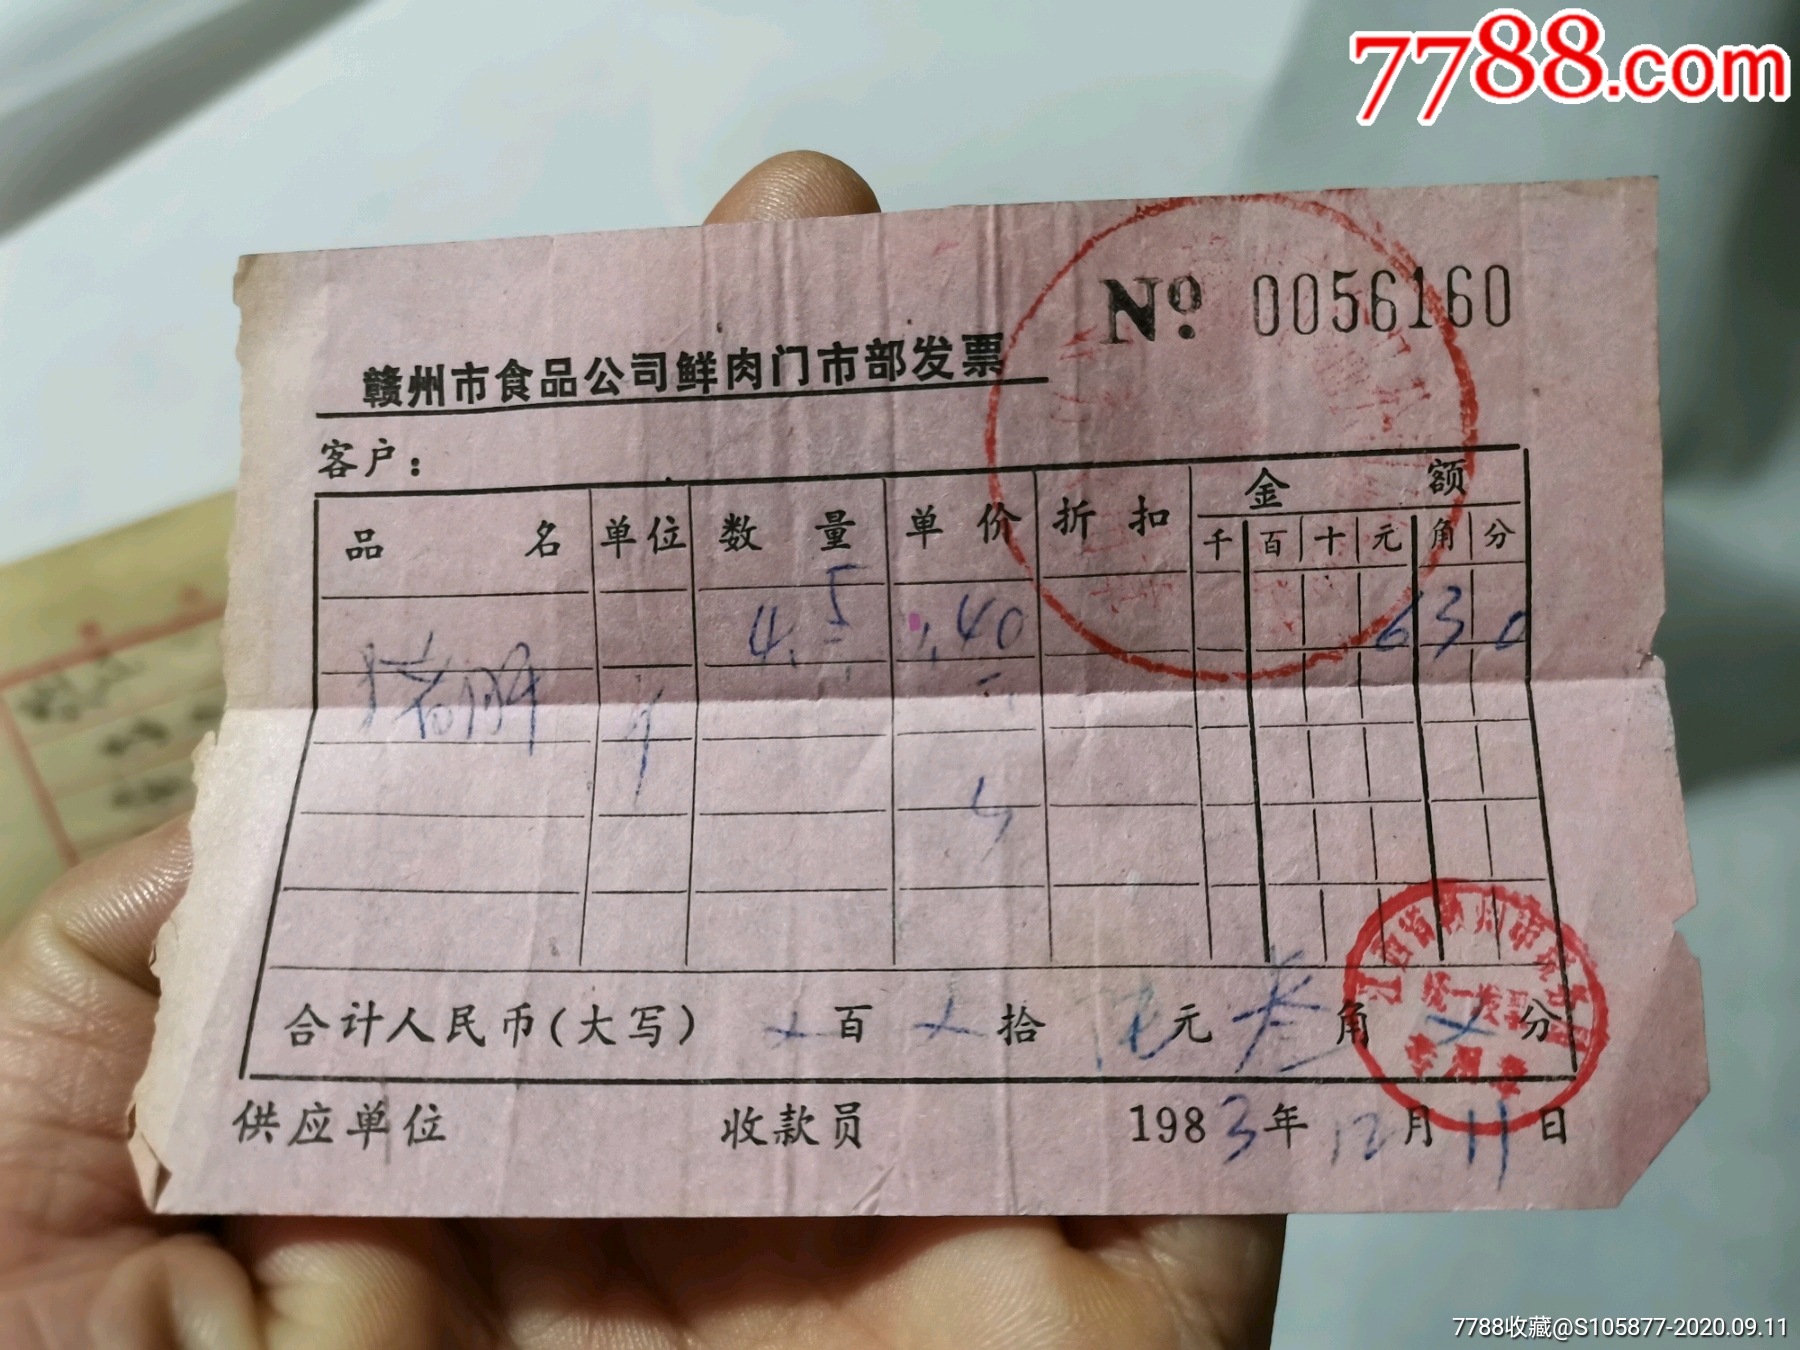 7788.com
№ 0056160
赣州市食品公司鲜肉门市部发票
客户：
品名 单位 数量 单价 折扣 金额
千 百 十 元 角 分
4.5 1.40 6 3 0
猪脚
合计人民币(大写) 百 拾 陆元 叁角 分
江西省赣州市
统一发票
专用章
供应单位 收款员 1983年12月11日
7788收藏@S105877-2020.09.11